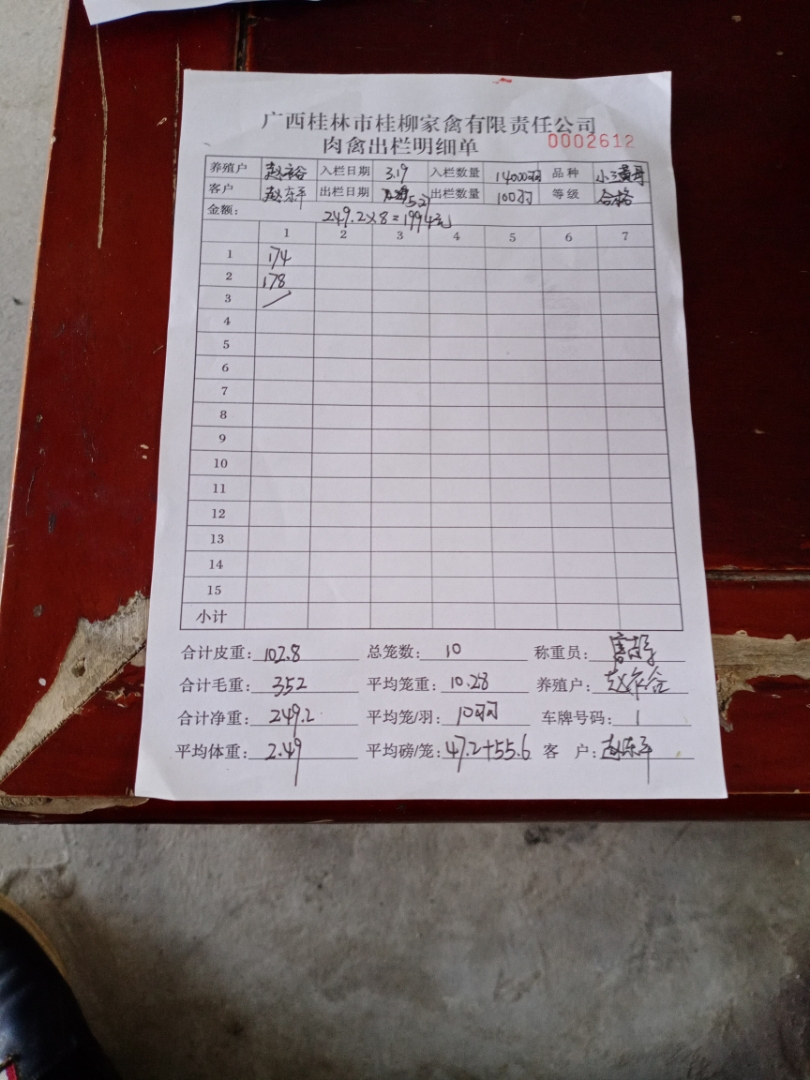 广西桂林市桂柳家禽有限责任公司
肉禽出栏明细单 0002612
养殖户 赵谷 入栏日期 3.19 入栏数量 14000羽 品种 小三黄
客户 赵东平 出栏日期 5.27 出栏数量 100羽 等级 合格
金额: 249.2×8=1994元
1 2 3 4 5 6 7
1 174
2 178
3
4
5
6
7
8
9
10
11
12
13
14
15
小计
合计皮重: 102.8 总笼数: 10 称重员:
合计毛重: 352 平均笼重: 10.28 养殖户: 赵谷
合计净重: 249.2 平均笼/羽: 10羽 车牌号码: 1
平均体重: 2.49 平均磅/笼: 47.2+55.6 客 户: 赵东平